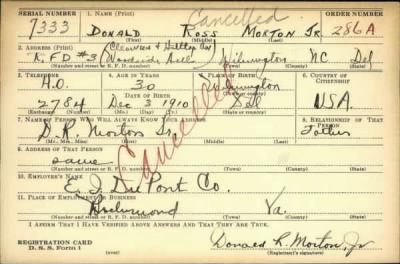 SERIAL NUMBER 1. NAME (Print) ORDER NUMBER
Cancelled
7333 DONALD ROSS MORTON JR. 286A
(First) (Middle) (Last)
2. ADDRESS (Print)
R.FD #3 Woodside Hills Wilmington NC Del
(Number and street or R. F. D. number) (Town) (County) (State)
3. TELEPHONE 4. AGE IN YEARS 5. PLACE OF BIRTH 6. COUNTRY OF CITIZENSHIP
H.O. 30 Wilmington
DATE OF BIRTH
2784 Dec 3 1910 Del USA.
(Exchange) (Number) (Mo.) (Day) (Yr.) (State or country)
7. NAME OF PERSON WHO WILL ALWAYS KNOW YOUR ADDRESS 8. RELATIONSHIP OF THAT PERSON
D. R. Morton Sr. Father
(Mr., Mrs., Miss) (First) (Middle) (Last)
9. ADDRESS OF THAT PERSON
same
(Number and street or R. F. D. number) (Town) (County) (State)
Cancelled
10. EMPLOYER'S NAME
E. I. Du Pont Co.
11. PLACE OF EMPLOYMENT OR BUSINESS
Richmond Va.
(Number and street or R. F. D. number) (Town) (County) (State)
I AFFIRM THAT I HAVE VERIFIED ABOVE ANSWERS AND THAT THEY ARE TRUE.
REGISTRATION CARD
D. S. S. Form 1
Donald R. Morton, Jr
(Registrant's signature)